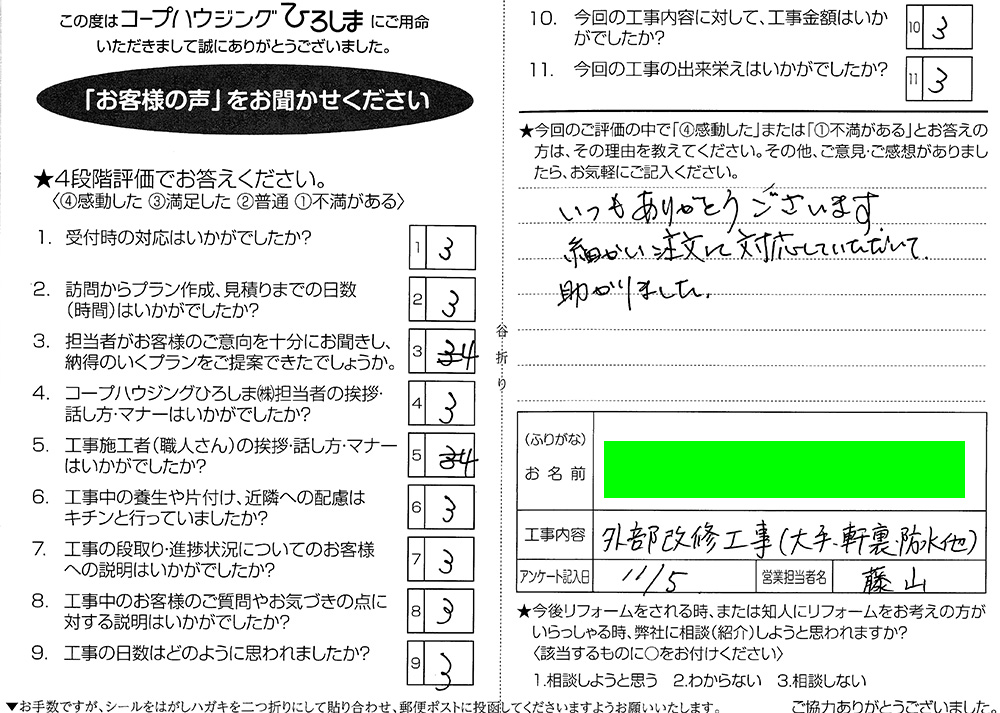 この度はコープハウジングひろしまにご用命
いただきまして誠にありがとうございました。
「お客様の声」をお聞かせください
★4段階評価でお答えください。
〈④感動した ③満足した ②普通 ①不満がある〉
1. 受付時の対応はいかがでしたか?
1 3
2. 訪問からプラン作成、見積りまでの日数
(時間)はいかがでしたか?
2 3
3. 担当者がお客様のご意向を十分にお聞きし、
納得のいくプランをご提案できたでしょうか。
3 34
4. コープハウジングひろしま㈱担当者の挨拶・
話し方・マナーはいかがでしたか?
4 3
5. 工事施工者(職人さん)の挨拶・話し方・マナー
はいかがでしたか?
5 34
6. 工事中の養生や片付け、近隣への配慮は
キチンと行っていましたか?
6 3
7. 工事の段取り・進捗状況についてのお客様
への説明はいかがでしたか?
7 3
8. 工事中のお客様のご質問やお気づきの点に
対する説明はいかがでしたか?
8 3
9. 工事の日数はどのように思われましたか?
9 3
▼お手数ですが、シールをはがしハガキを二つ折りにして貼り合わせ、郵便ポストに投函してくださいますようお願いいたします。
谷折り
10. 今回の工事内容に対して、工事金額はいか
がでしたか?
10 3
11. 今回の工事の出来栄えはいかがでしたか?
11 3
★今回のご評価の中で「④感動した」または「①不満がある」とお答えの
方は、その理由を教えてください。その他、ご意見・ご感想がありまし
たら、お気軽にご記入ください。
いつもありがとうございます。
細かい注文に対応していただいて、
助かりました。
(ふりがな)
お名前
工事内容 外部改修工事(大手・軒裏・防水他)
アンケート記入日 11/5 営業担当者名 藤山
★今後リフォームをされる時、または知人にリフォームをお考えの方が
いらっしゃる時、弊社に相談(紹介)しようと思われますか?
〈該当するものに○をお付けください〉
1.相談しようと思う 2.わからない 3.相談しない
ご協力ありがとうございました。